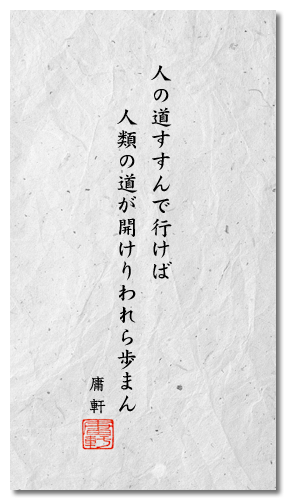 人の道すすんで行けば
人類の道が開けりわれら歩まん
庸軒